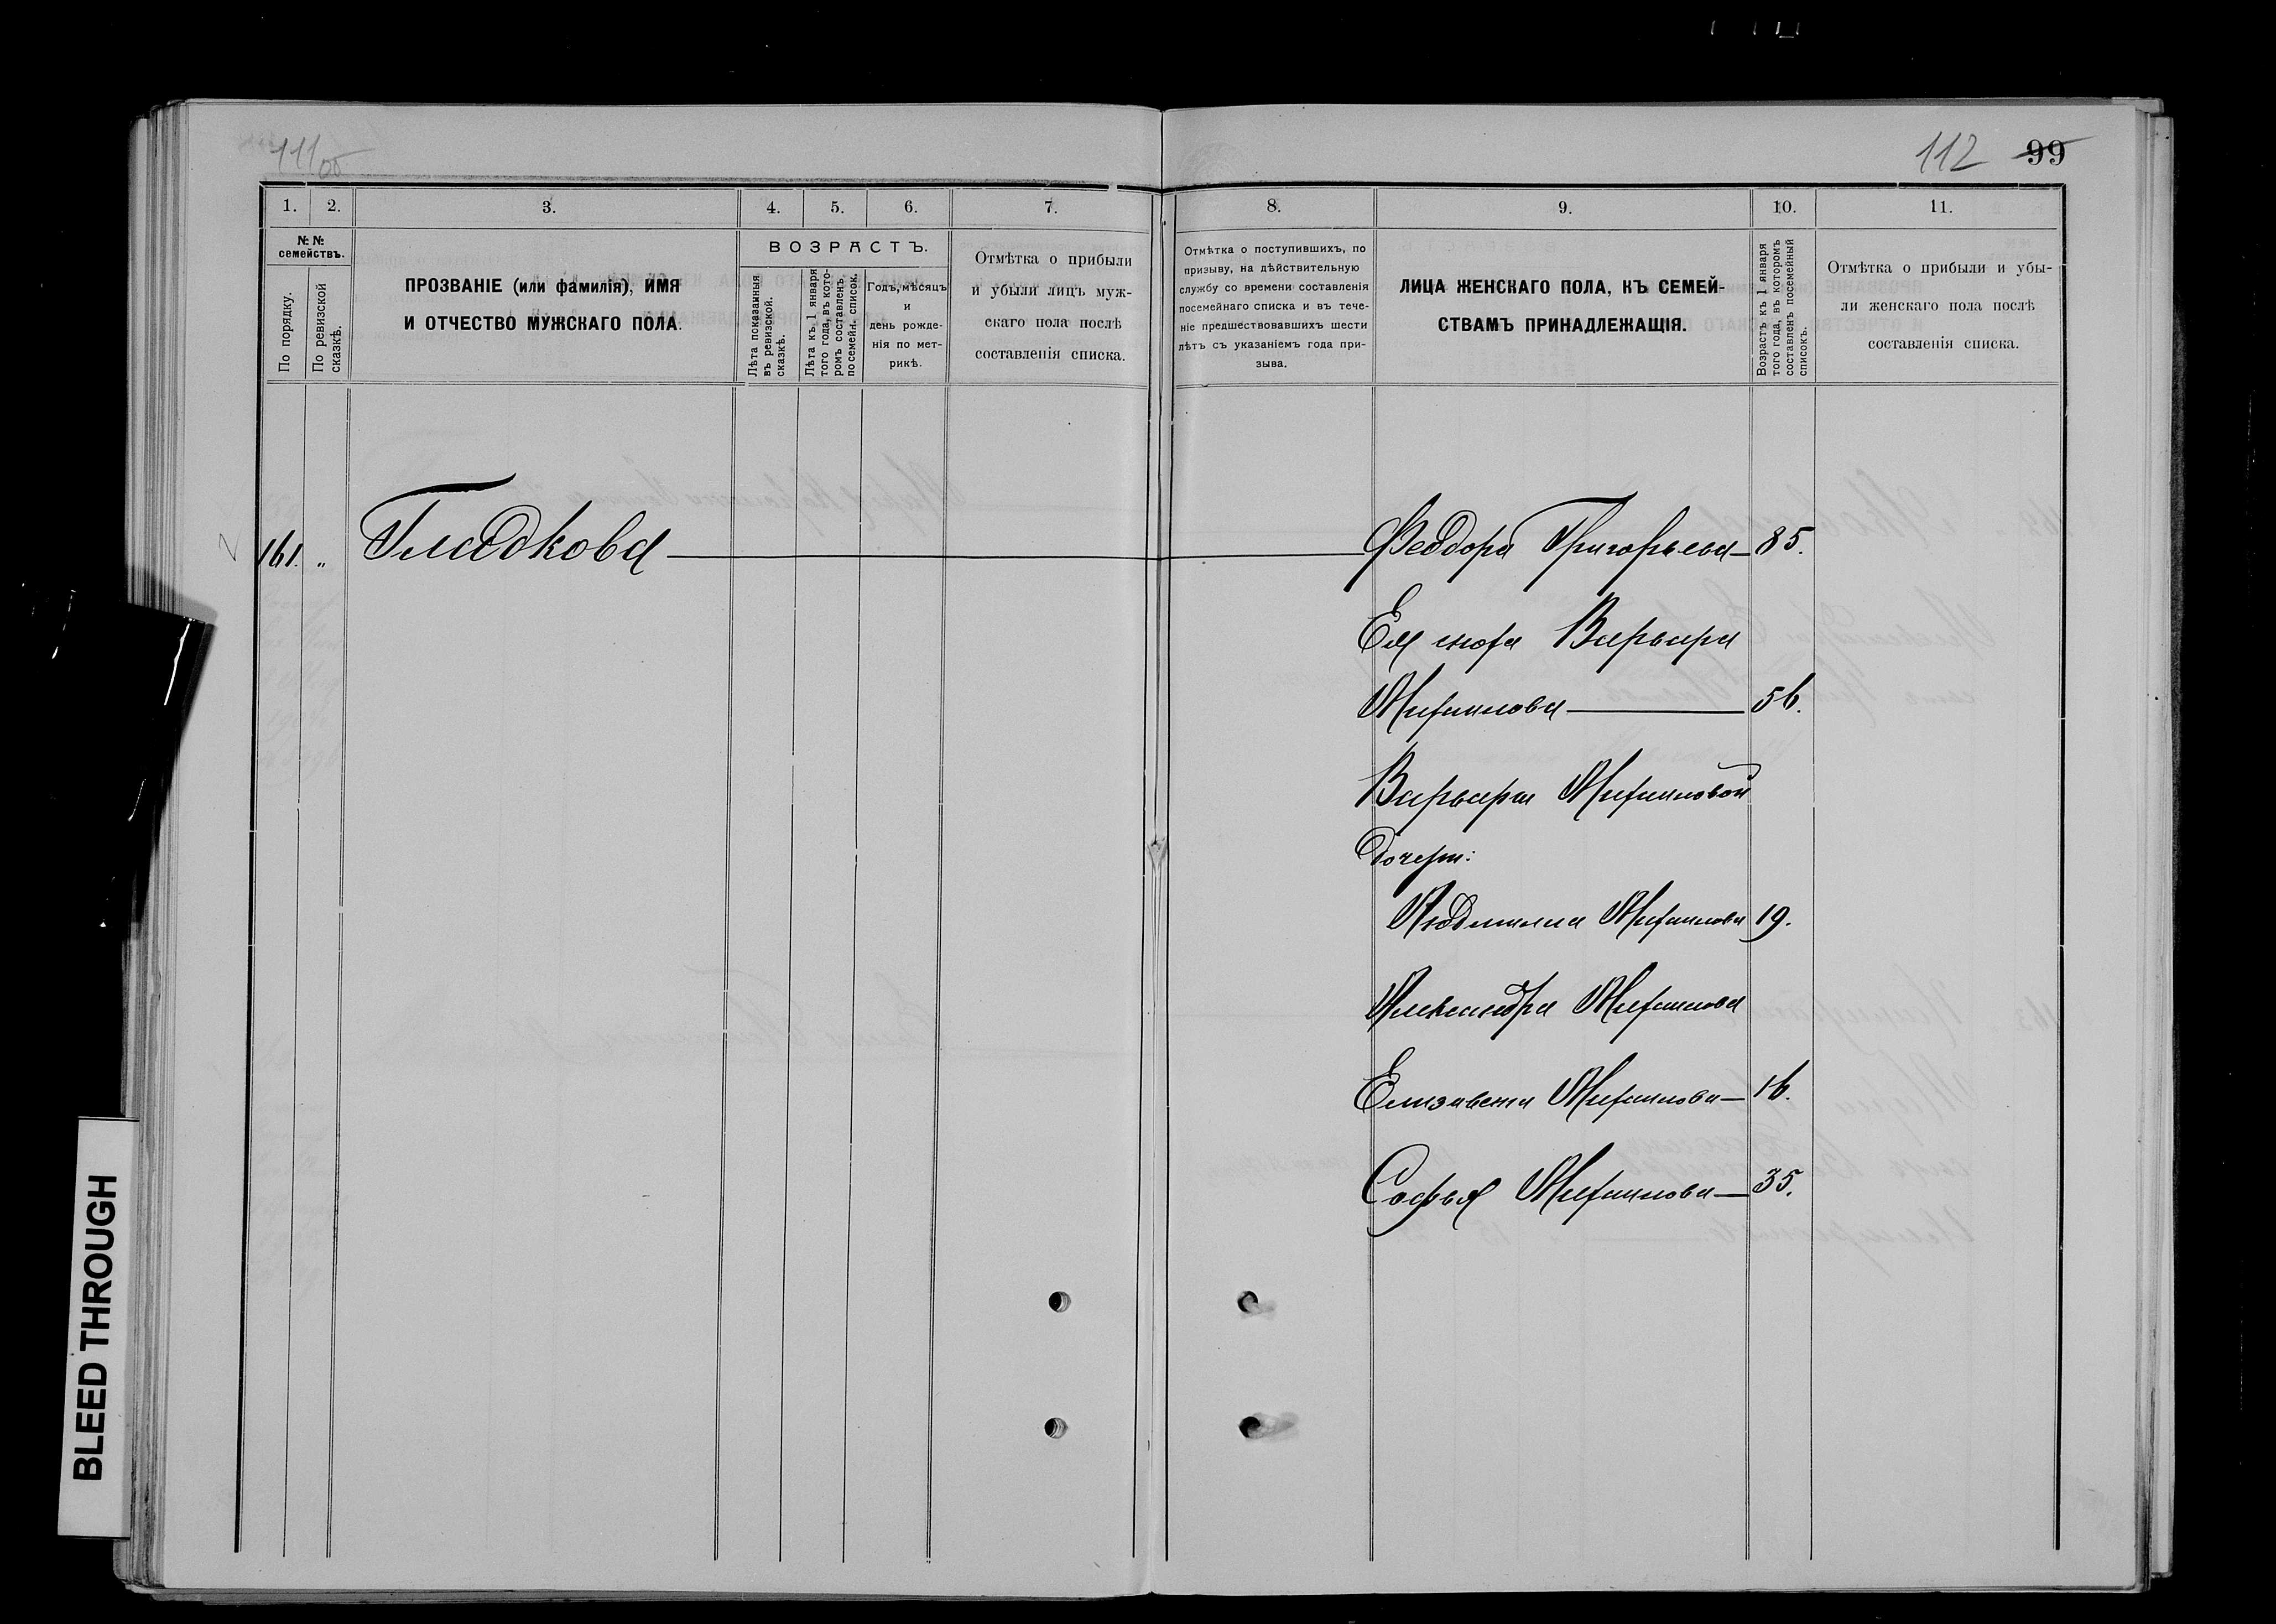 111
112 99
1. 2. 3. 4. 5. 6. 7.
№ № семействъ.
По порядку.
По ревизской сказкѣ.
ПРОЗВАНІЕ (или фамилія), ИМЯ
И ОТЧЕСТВО МУЖСКАГО ПОЛА.
ВОЗРАСТЪ.
Лѣта показанныя
въ ревизской
сказкѣ.
Лѣта къ 1 января
того года, въ кото-
ромъ составленъ
посемейн. список.
Годъ, мѣсяцъ
и
день рожде-
нія по мет-
рикѣ.
Отмѣтка о прибыли
и убыли лицъ муж-
скаго пола послѣ
составленія списка.
8. 9. 10. 11.
Отмѣтка о поступившихъ, по
призыву, на дѣйствительную
службу со времени составленія
посемейнаго списка и въ тече-
ніе предшествовавшихъ шести
лѣтъ съ указаніемъ года при-
зыва.
ЛИЦА ЖЕНСКАГО ПОЛА, КЪ СЕМЕЙ-
СТВАМЪ ПРИНАДЛЕЖАЩІЯ.
Возрастъ къ 1 января
того года, въ которомъ
составленъ посемейный
списокъ.
Отмѣтка о прибыли и убы-
ли женскаго пола послѣ
составленія списка.
161. „ Гладкова Феодора Григорьева 85.
Ея сноха Варвара
Михаилова 56.
Варвары Михаиловой
дочери:
Людмила Михаилова 19.
Александра Михаилова
Елизавета Михаилова 16.
Софья Михаилова 35.
BLEED THROUGH